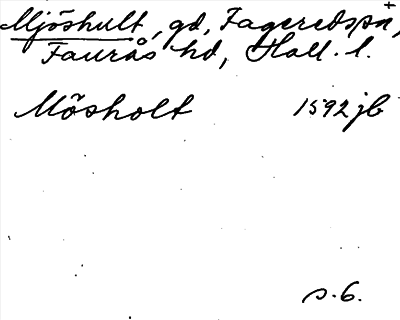 Mjöshult, gd, Fagereds sn,
Faurås hd, Hall. l.
Mösholt 1592 jb
s. 6.